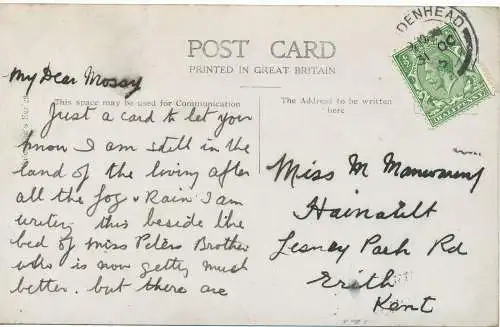 POST CARD
PRINTED IN GREAT BRITAIN
DENHEAD
My Dear Mossay
This space may be used for Communication
The Address to be written
here
Just a card to let you
know I am still in the
land of the living after
all the fog & Rain I am
writing this beside the
bed of Miss Peters Brother
who is now getting much
better. but there are
Miss M Manwaring
Hainault
Lesney Park Rd
Erith
Kent